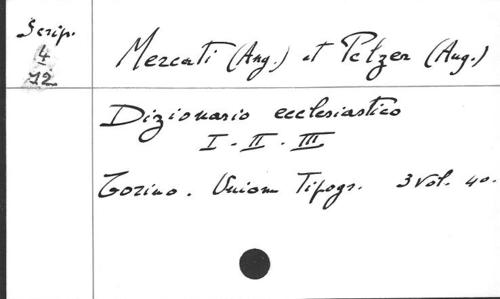 Scrip.
4
72
Mercati (Ang.) et Pelzer (Aug.)
Dizionario ecclesiastico
I - II - III
Torino. Union Tipogr. 3 vol. 4o.